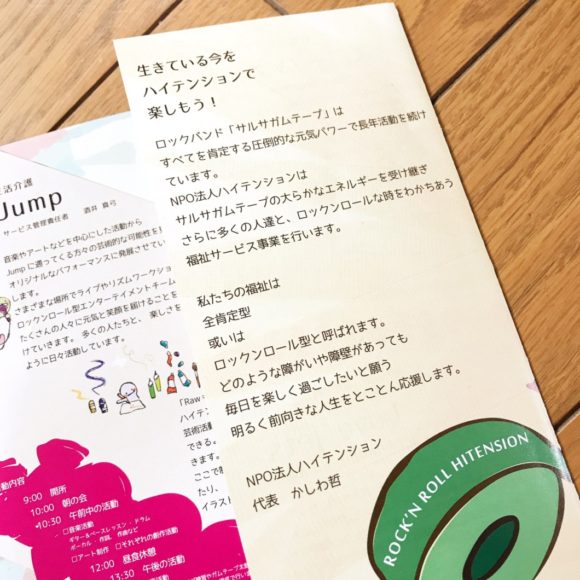 生きている今を
ハイテンションで
楽しもう！
ロックバンド「サルサガムテープ」は
すべてを肯定する圧倒的な元気パワーで長年活動を続け
ています。
NPO法人ハイテンションは
サルサガムテープの大らかなエネルギーを受け継ぎ
さらに多くの人達と、ロックンロールな時をわかちあう
福祉サービス事業を行います。
私たちの福祉は
全肯定型
或いは
ロックンロール型と呼ばれます。
どのような障がいや障壁があっても
毎日を楽しく過ごしたいと願う
明るく前向きな人生をとことん応援します。
NPO法人ハイテンション
代表　かしわ哲
ROCK'N ROLL HITENSION
活介護
Jump
サービス管理責任者　酒井 真弓
音楽やアートなどを中心にした活動から
Jumpに通ってくる方々の芸術的な可能性を
オリジナルなパフォーマンスに発展させてい
します。
さまざまな場所でライブやリズムワークショ
ロックンロール型エンターテイメントチーム
たくさんの人々に元気と笑顔を届けることを
けていきます。多くの人たちと、楽しさを
ように日々活動しています。
「Raw
ハイテン
芸術活動
できる。
きます。
ここで
たり、
イラスト
動内容
9:00　開所
10:00　朝の会
10:30　午前中の活動
□音楽活動
ギター&ベースレッスン・ドラム
ボーカル・作詞、作曲など
□アート制作　□それぞれの創作活動
12:00　昼食休憩
13:30　午後の活動